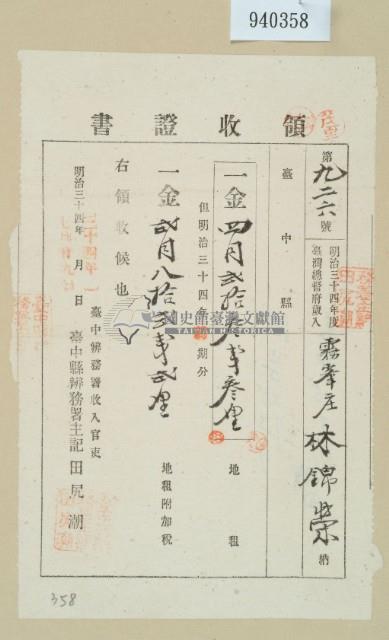 940358
領收證書
第九二六號
明治三十四年度
臺灣總督府歲入
霧峯庄 林錦榮 納
臺中縣
一金四円貳拾
地租
但明治三十四年 期分
一金貳円八拾 錢貳厘
地租附加稅
右領收候也
明治三十四年 月 日
臺中辨務署收入官吏
臺中縣辨務署主記 田尻潮
國史館臺灣文獻館
TAIWAN HISTORICA
358